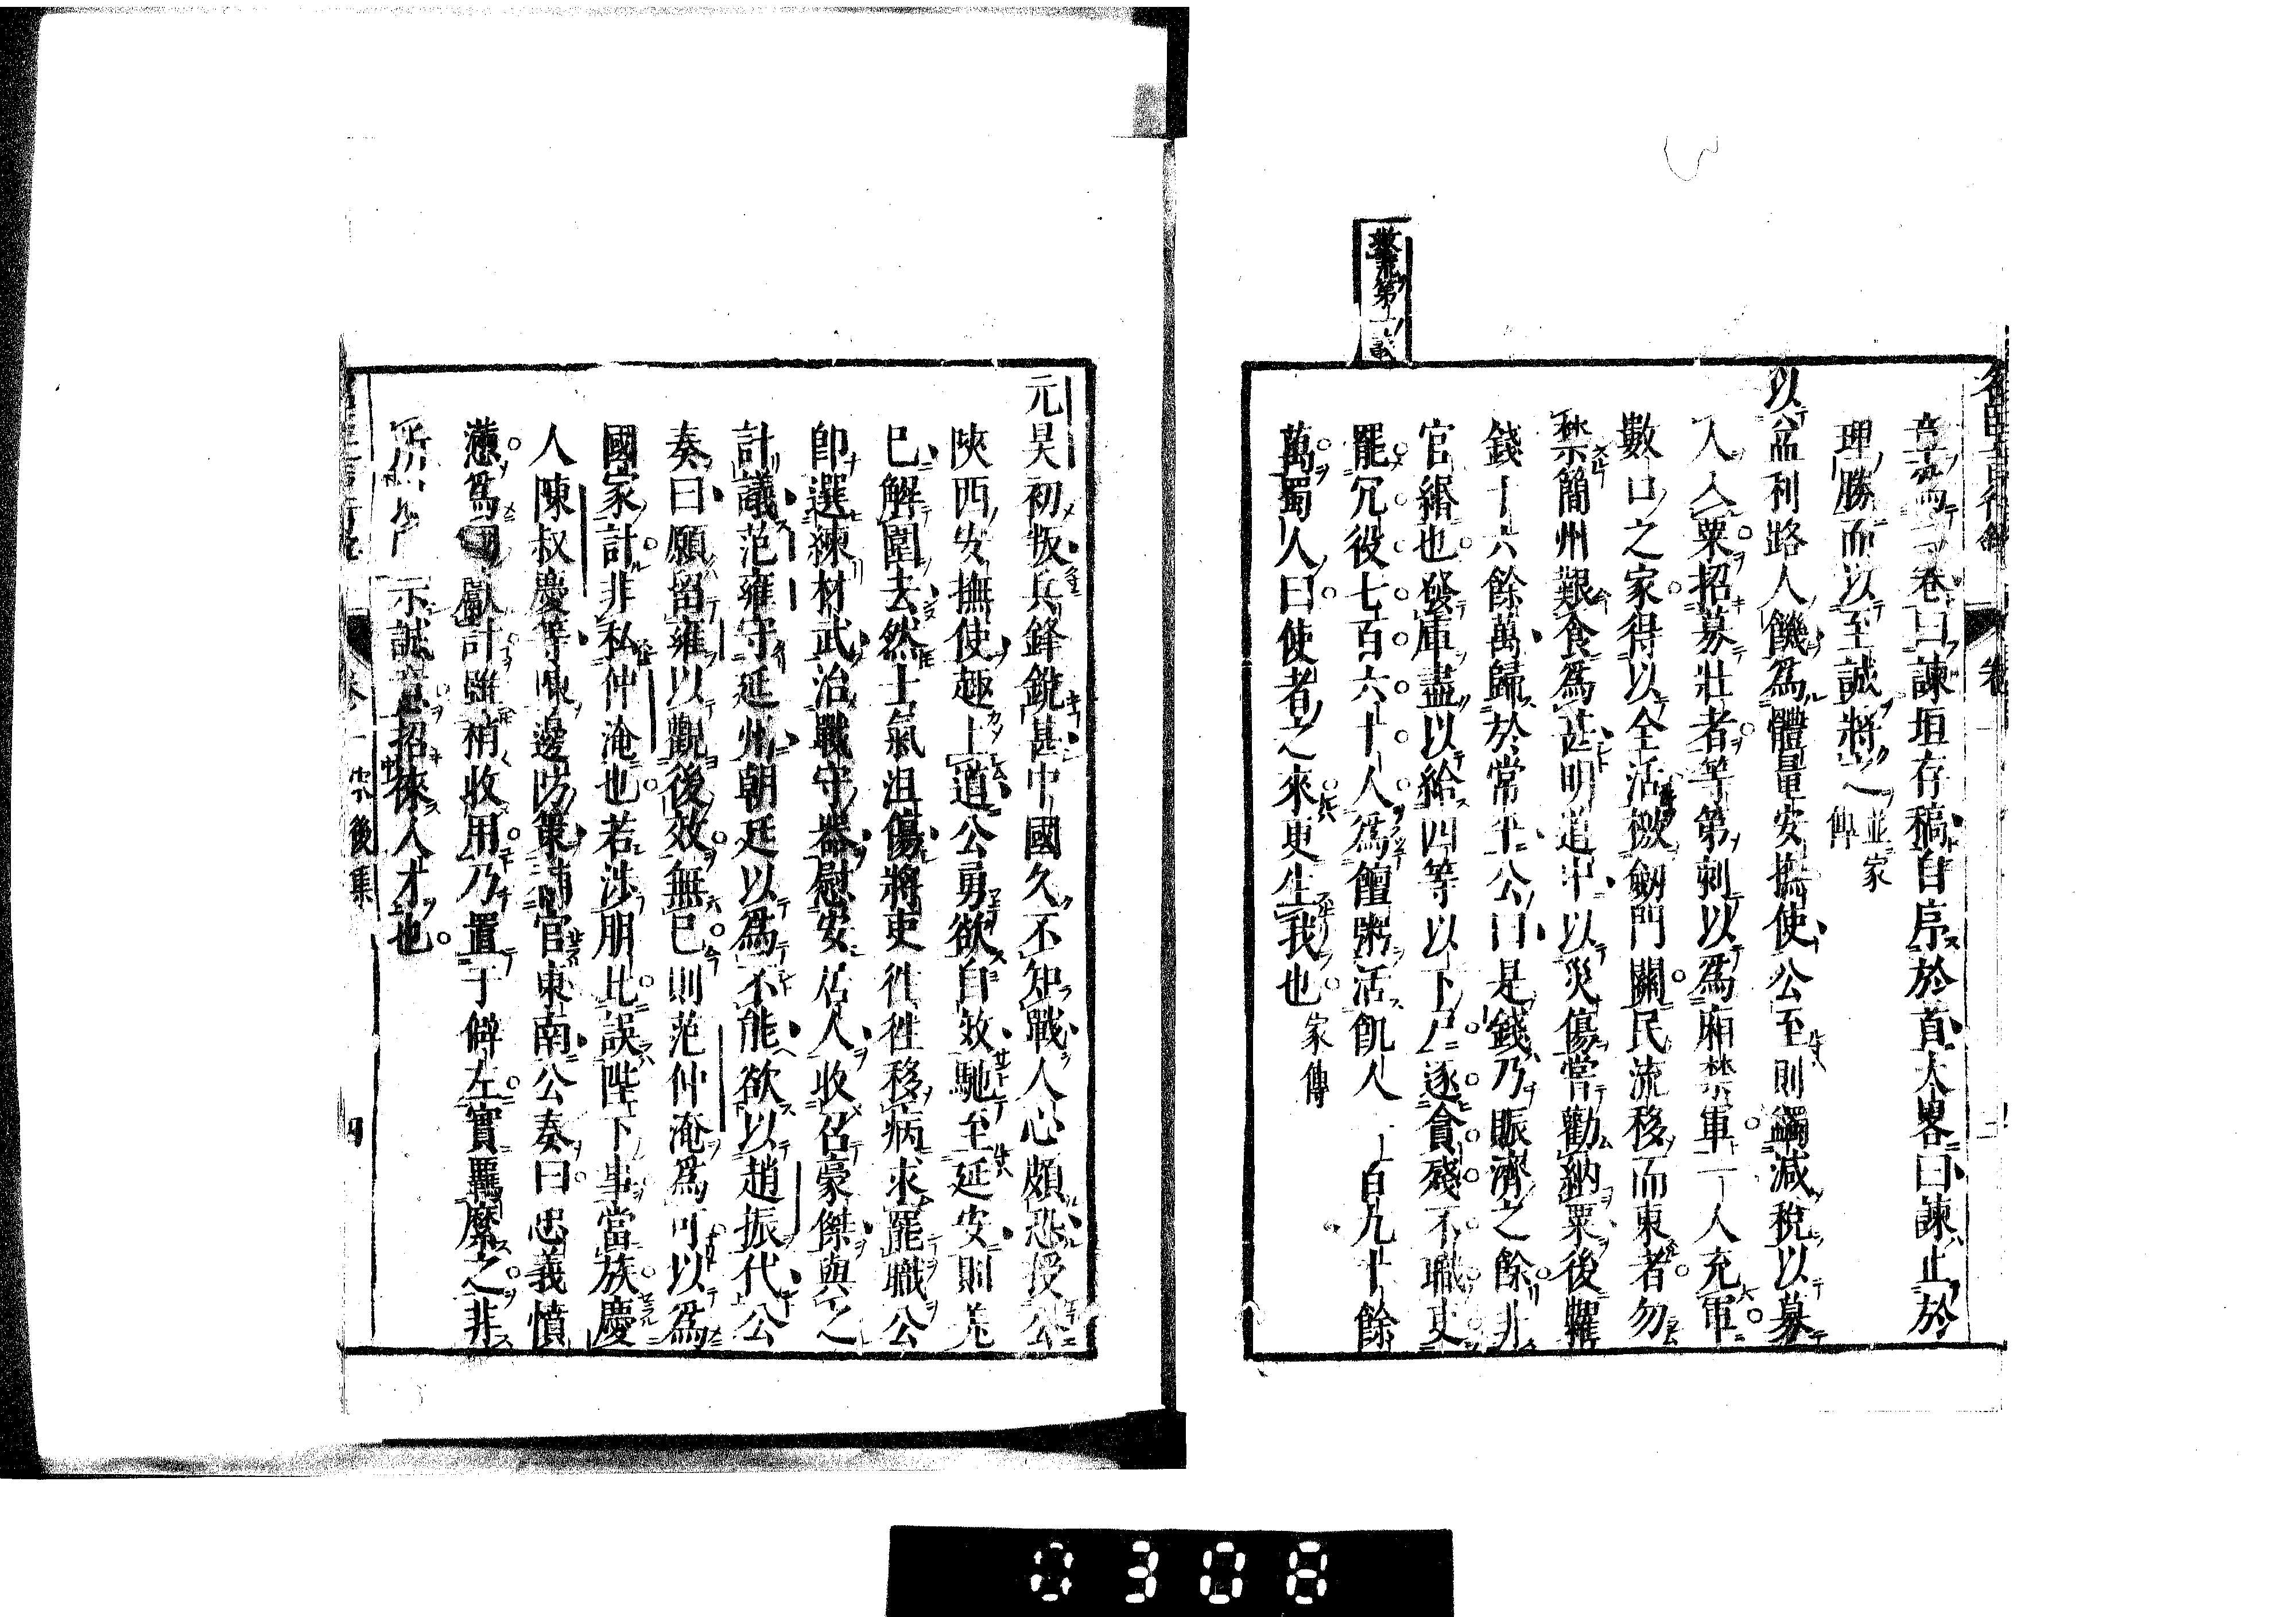 名臣言行錄
卷一
章爲三卷曰諫垣存稿自序於首大畧曰諫止於
理勝而以至誠將之並家傳
以益利路人饑爲體量安撫使公至則蠲減稅以募
入入粟招募壯者等第刺以爲廂禁軍一人充軍
數口之家得以全活檄劒門關民流移而東者勿
禁簡州艱食爲甚明道中以災傷嘗勸納粟後糶
錢十六餘萬歸於常平公曰是錢乃賑濟之餘非
官緡也發庫盡以給四等以下戶逐貪殘不職吏
罷冗役七百六十人爲饘粥活飢人一百九十餘
萬蜀人曰使者之來更生我也家傳
元昊初叛兵鋒銳甚中國久不知戰人心頗恐授公
陝西安撫使趣上道公勇欲自效馳至延安則羌
已解圍去然士氣沮傷將吏往往移病求罷職公
卽選練材武治戰守器慰安居人收召豪傑與之
計議范雍守延州朝廷以爲不能欲以趙振代公
奏曰願留雍以觀後效無已則范仲淹爲可以爲
國家計非私仲淹也若涉朋比誤陛下事當族慶
人陳叔慶等陳邊防策補官東南公奏曰忠義憤
懣爲國獻計雖稍收用乃置于僻左實羈縻之非
所以示誠意招徠人才也
卷一
後集
四
0308